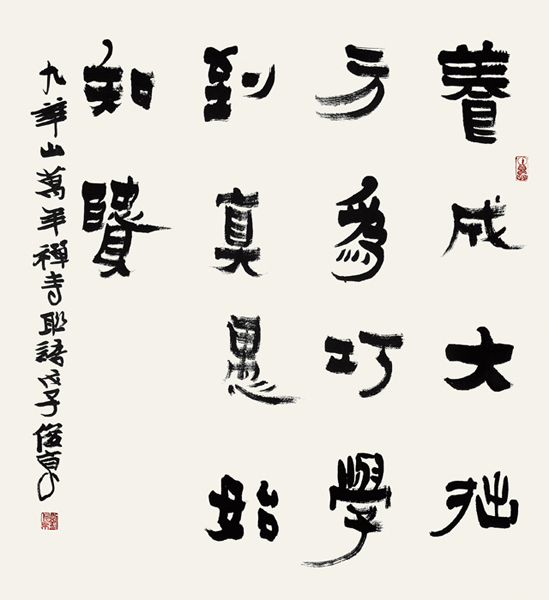 養成大拙
方爲巧學
到真愚始
知賢
九華山萬年禪寺聯語戊子